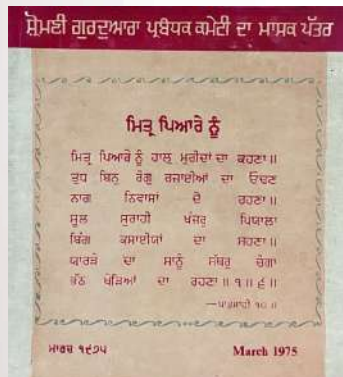 ਸ਼੍ਰੋਮਣੀ ਗੁਰਦੁਆਰਾ ਪ੍ਰਬੰਧਕ ਕਮੇਟੀ ਦਾ ਮਾਸਕ ਪੱਤਰ
ਮਿਤ੍ਰ ਪਿਆਰੇ ਨੂੰ
ਮਿਤ੍ਰ ਪਿਆਰੇ ਨੂੰ ਹਾਲੁ ਮੁਰੀਦਾਂ ਦਾ ਕਹਣਾ॥
ਤੁਧ ਬਿਨੁ ਰੋਗੁ ਰਜਾਈਆਂ ਦਾ ਓਢਣ
ਨਾਗ ਨਿਵਾਸਾਂ ਦੇ ਰਹਣਾ॥
ਸੂਲ ਸੁਰਾਹੀ ਖੰਜਰੁ ਪਿਯਾਲਾ
ਬਿੰਗ ਕਸਾਈਯਾਂ ਦਾ ਸਹਣਾ॥
ਯਾਰੜੇ ਦਾ ਸਾਨੂੰ ਸੱਥਰੁ ਚੰਗਾ
ਭੱਠ ਖੇੜਿਆਂ ਦਾ ਰਹਣਾ॥੧॥੬॥
—ਪਾਤਸ਼ਾਹੀ ੧੦॥
ਮਾਰਚ ੧੯੭੫
March 1975